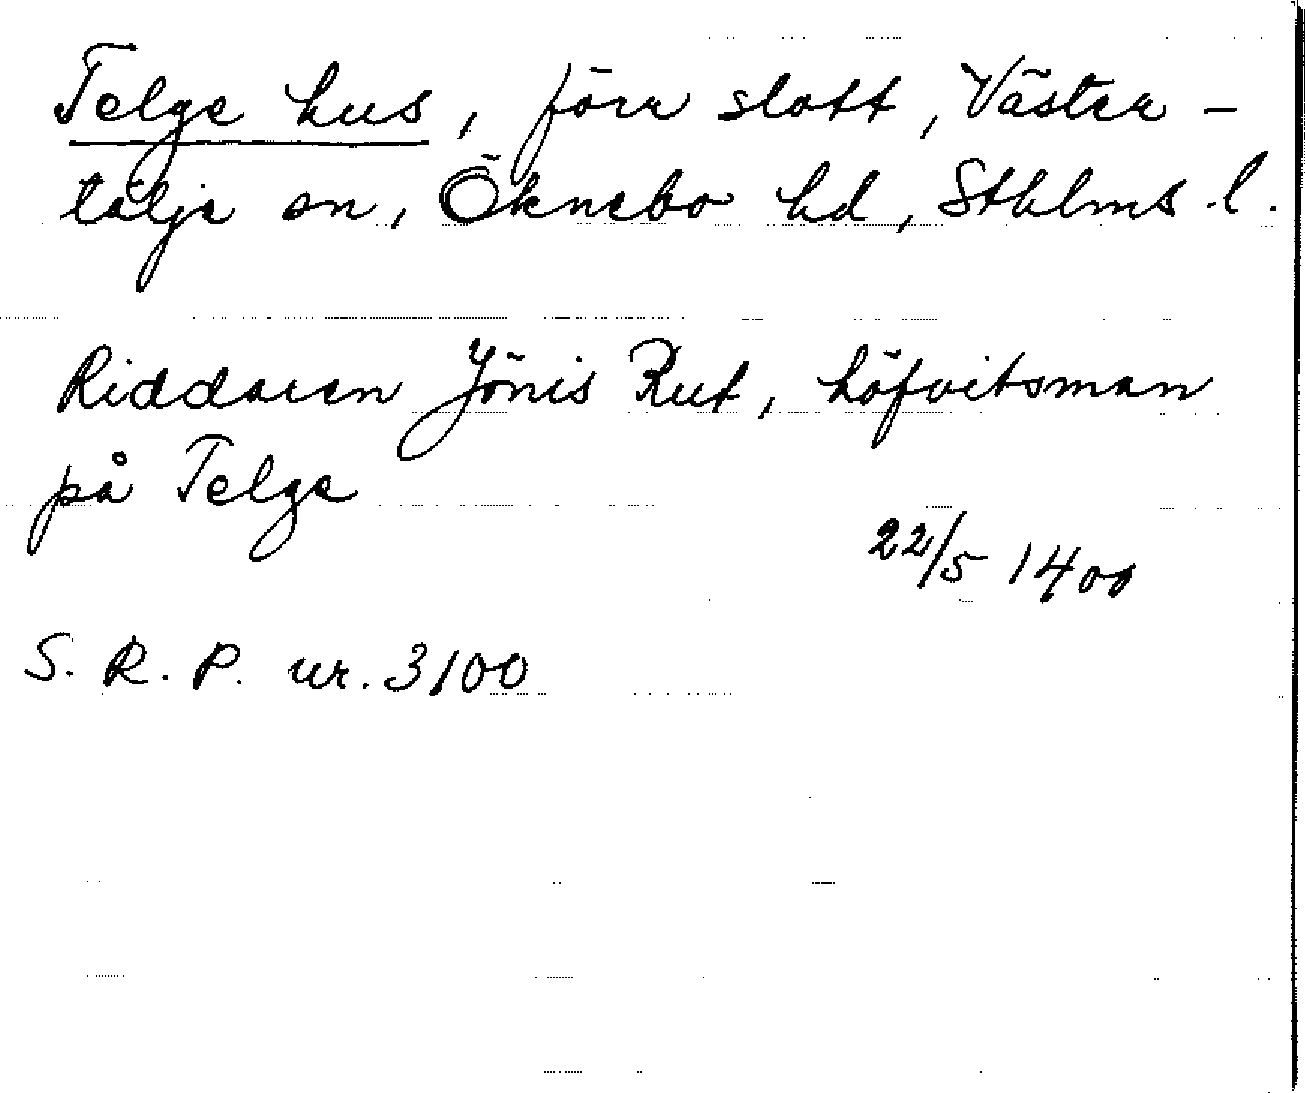 Telge hus, förr slott, Väster-
tälje sn, Öknebo hd, Sthlms l.
Riddaren Jönis Rut, höfvitsman
på Telge
22/5 1400
S. R. P. nr. 3100